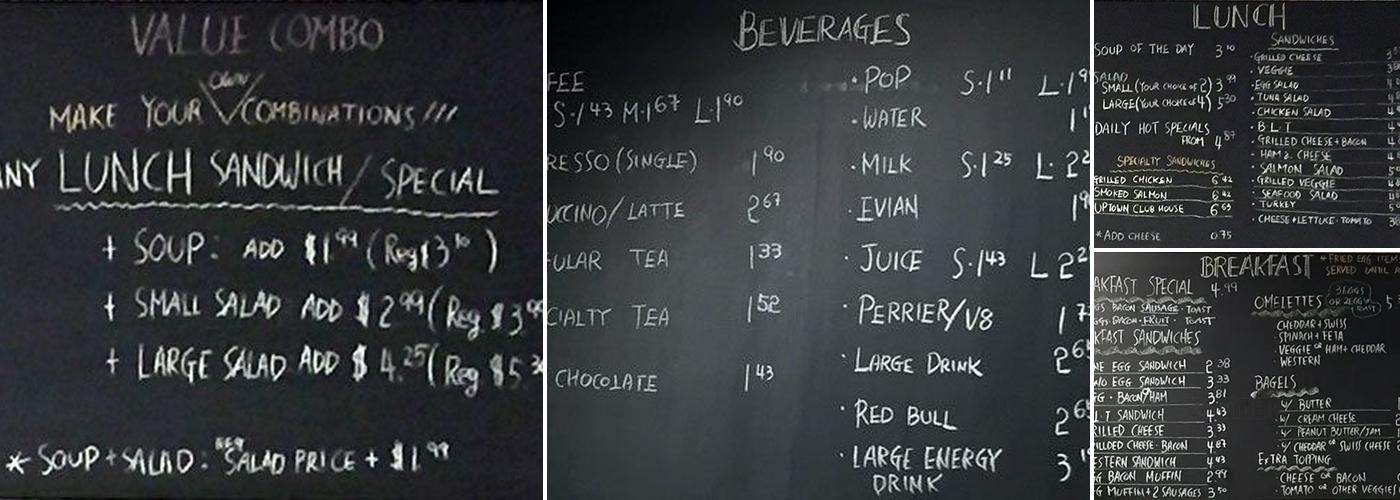 VALUE COMBO
OWN
MAKE YOUR COMBINATIONS!!!
NY LUNCH SANDWICH / SPECIAL
+ SOUP: ADD $1.99 (Reg $3.10)
+ SMALL SALAD ADD $2.99 (Reg $3.99
+ LARGE SALAD ADD $4.25 (Reg $5.30
* SOUP + SALAD: REG SALAD PRICE + $1.99
BEVERAGES
FEE
S.1.43 M.1.67 L.1.90
RESSO (SINGLE) 1.90
UCCINO/LATTE 2.67
ULAR TEA 1.33
CIALTY TEA 1.52
CHOCOLATE 1.43
· POP S.1.11 L.1.9
· WATER 1.
· MILK S.1.25 L.2.2
· EVIAN 1.9
· JUICE S.1.43 L 2.2
· PERRIER/V8 1.7
· LARGE DRINK 2.65
· RED BULL 2.65
· LARGE ENERGY DRINK 3.
LUNCH
SOUP OF THE DAY 3.10
SALAD
SMALL (YOUR CHOICE OF 2) 3.99
LARGE (YOUR CHOICE OF 4) 5.30
DAILY HOT SPECIALS
FROM 4.87
SPECIALTY SANDWICHES
GRILLED CHICKEN 6.42
SMOKED SALMON 6.42
UPTOWN CLUB HOUSE 6.63
* ADD CHEESE 0.75
SANDWICHES
· GRILLED CHEESE
· VEGGIE
· EGG SALAD
· TUNA SALAD
· CHICKEN SALAD
· B.L.T
· GRILLED CHEESE + BACON
· HAM & CHEESE
· SALMON SALAD
· GRILLED VEGGIE
· SEAFOOD SALAD
· TURKEY
· CHEESE + LETTUCE · TOMATO
BREAKFAST
* FRIED EGG ITEM
SERVED UNTIL
AKFAST SPECIAL 4.99
GS BACON SAUSAGE · TOAST
GGS · BACON · FRUIT · TOAST
KFAST SANDWICHES
NE EGG SANDWICH 2.38
WO EGG SANDWICH 3.33
GG · BACON OR HAM 3.81
L.T SANDWICH 4.43
RILLED CHEESE 3.33
RILLDED CHEESE · BACON 4.87
ESTERN SANDWICH 4.43
GG BACON MUFFIN 2.99
G MUFFIN + 2 SAUSAGES 3.50
OMELETTES 3 EGGS OR 2 EGGS TOAST 5
CHEDDAR + SWISS
SPINACH + FETA
VEGGIE OR HAM + CHEDDAR
WESTERN
BAGELS
· W/ BUTTER
· W/ CREAM CHEESE
· W/ PEANUT BUTTER/JAM
· W/ CHEDDAR OR SWISS CHEESE
EXTRA TOPPING
· CHEESE OR BACON
· TOMATO OR OTHER VEGGIE